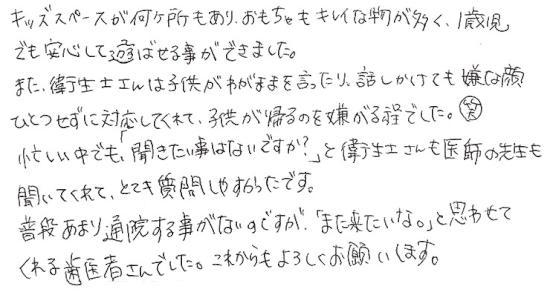 キッズスペースが何ヶ所もあり、おもちゃもキレイな物が多く、1歳児
でも安心して遊ばせる事ができました。
また、衛生士さんは子供がわがままを言ったり、話しかけても嫌な顔
ひとつせずに対応してくれて、子供が帰るのを嫌がる程でした。㊗
忙しい中でも、「聞きたい事はないですか?」と衛生士さんも医師の先生も
聞いてくれて、とても質問しやすかったです。
普段あまり通院する事がないのですが、「また来たいな。」と思わせて
くれる歯医者さんでした。これからもよろしくお願いします。